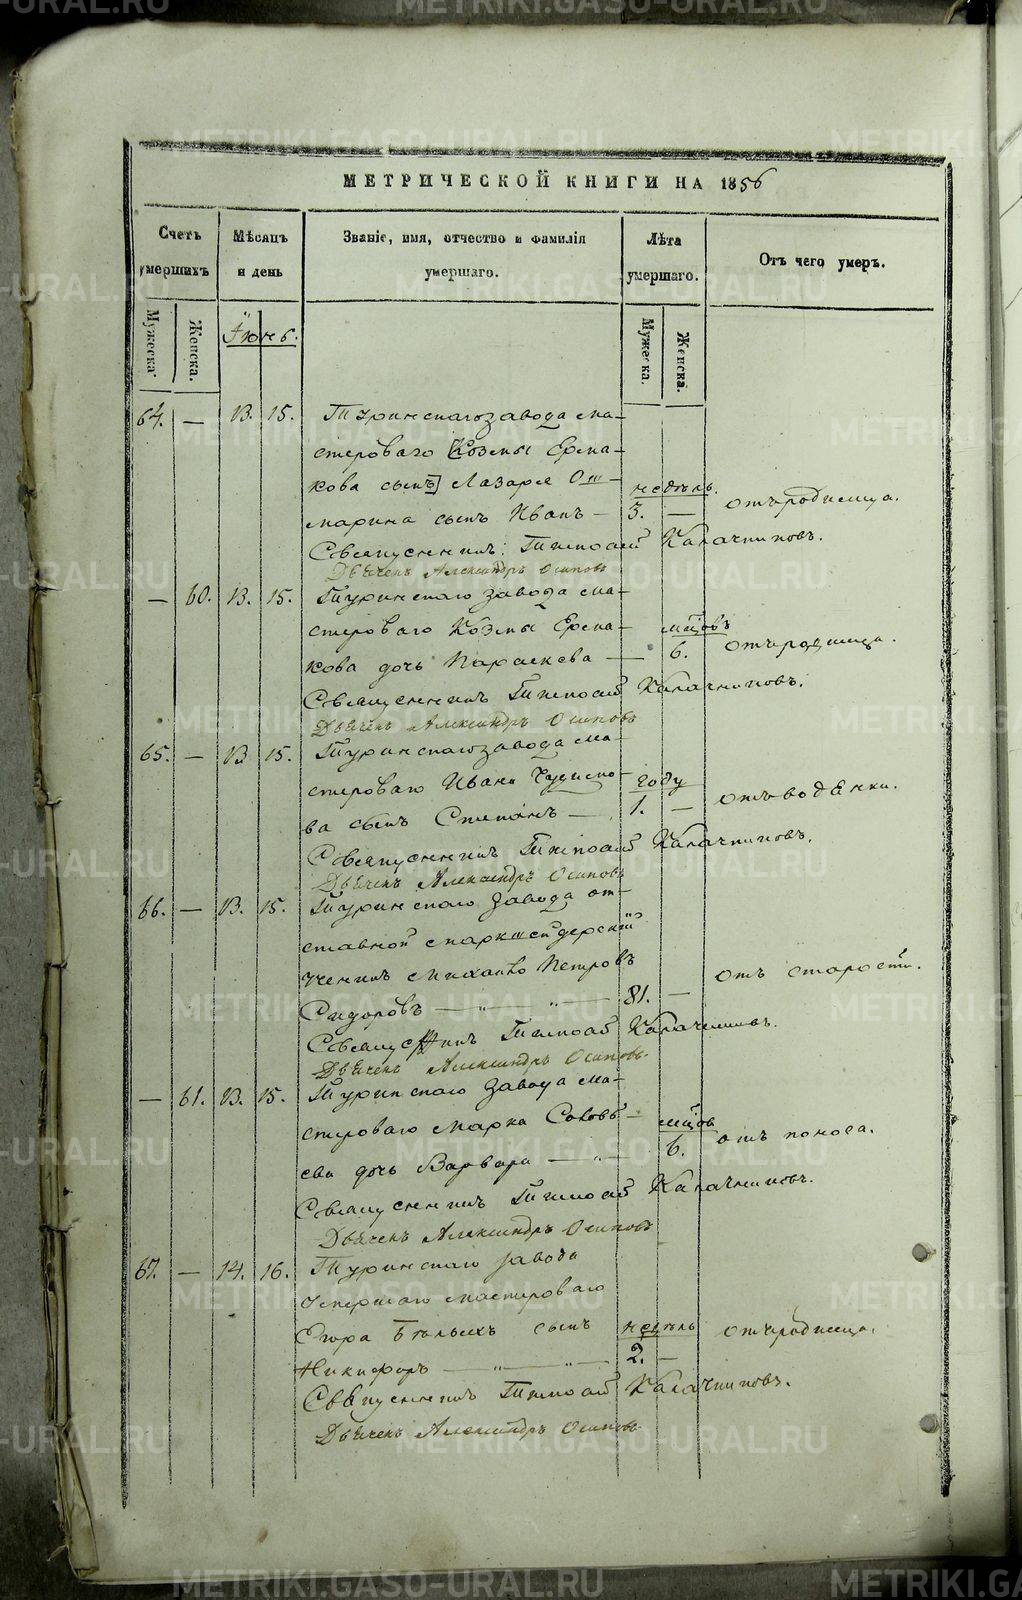 МЕТРИЧЕСКОЙ КНИГИ НА 1856
Счетъ умершихъ
Мѣсяцъ и день
Званіе, имя, отчество и фамилія умершаго.
Лѣта умершаго.
Отъ чего умеръ.
Мужеска.
Женска.
Іюнь.
Мужеска.
Женска.
64. — 13. 15. Туринскаго завода ма-
стероваго [Козмы Ерма-
кова сынъ] Лазаря От- недѣль.
марина сынъ Иванъ — 3. — отъ родимца.
Священникъ Тимофей Калачниковъ.
Дьячекъ Александръ Осиповъ
— 60. 13. 15. Туринскаго завода ма-
стероваго Козмы Ерма- мцовъ
кова дочь Параскева — 6. отъ родимца.
Священникъ Тимофей Калачниковъ.
Дьячекъ Александръ Осиповъ
65. — 13 15. Туринскаго завода ма-
стероваго Ивана году
ва сынъ Степанъ — 1. — отъ водянки.
Священникъ Тимофей Калачниковъ.
Дьячекъ Александръ Осиповъ
66. — 13. 15. Туринскаго завода от-
ставной маркшейдерскій
ученикъ Михайло Петровъ
Сидоровъ — „ „ — 81. — отъ старости.
Священникъ Тимофей Калачниковъ.
Дьячекъ Александръ Осиповъ.
— 61. 13. 15. Туринскаго завода ма-
стероваго Марка Соловь- мцовъ
ева дочь Варвара — „ — 6. отъ поноса.
Священникъ Тимофей Калачниковъ.
Дьячекъ Александръ Осиповъ
67. — 14. 16. Туринскаго завода
умершаго мастероваго
Егора Бѣлыхъ сынъ недѣль отъ родимца.
Никифоръ — „ — „ — 2. —
Священникъ Тимофей Калачниковъ.
Дьячекъ Александръ Осиповъ
METRIKI.GASO-URAL.RU